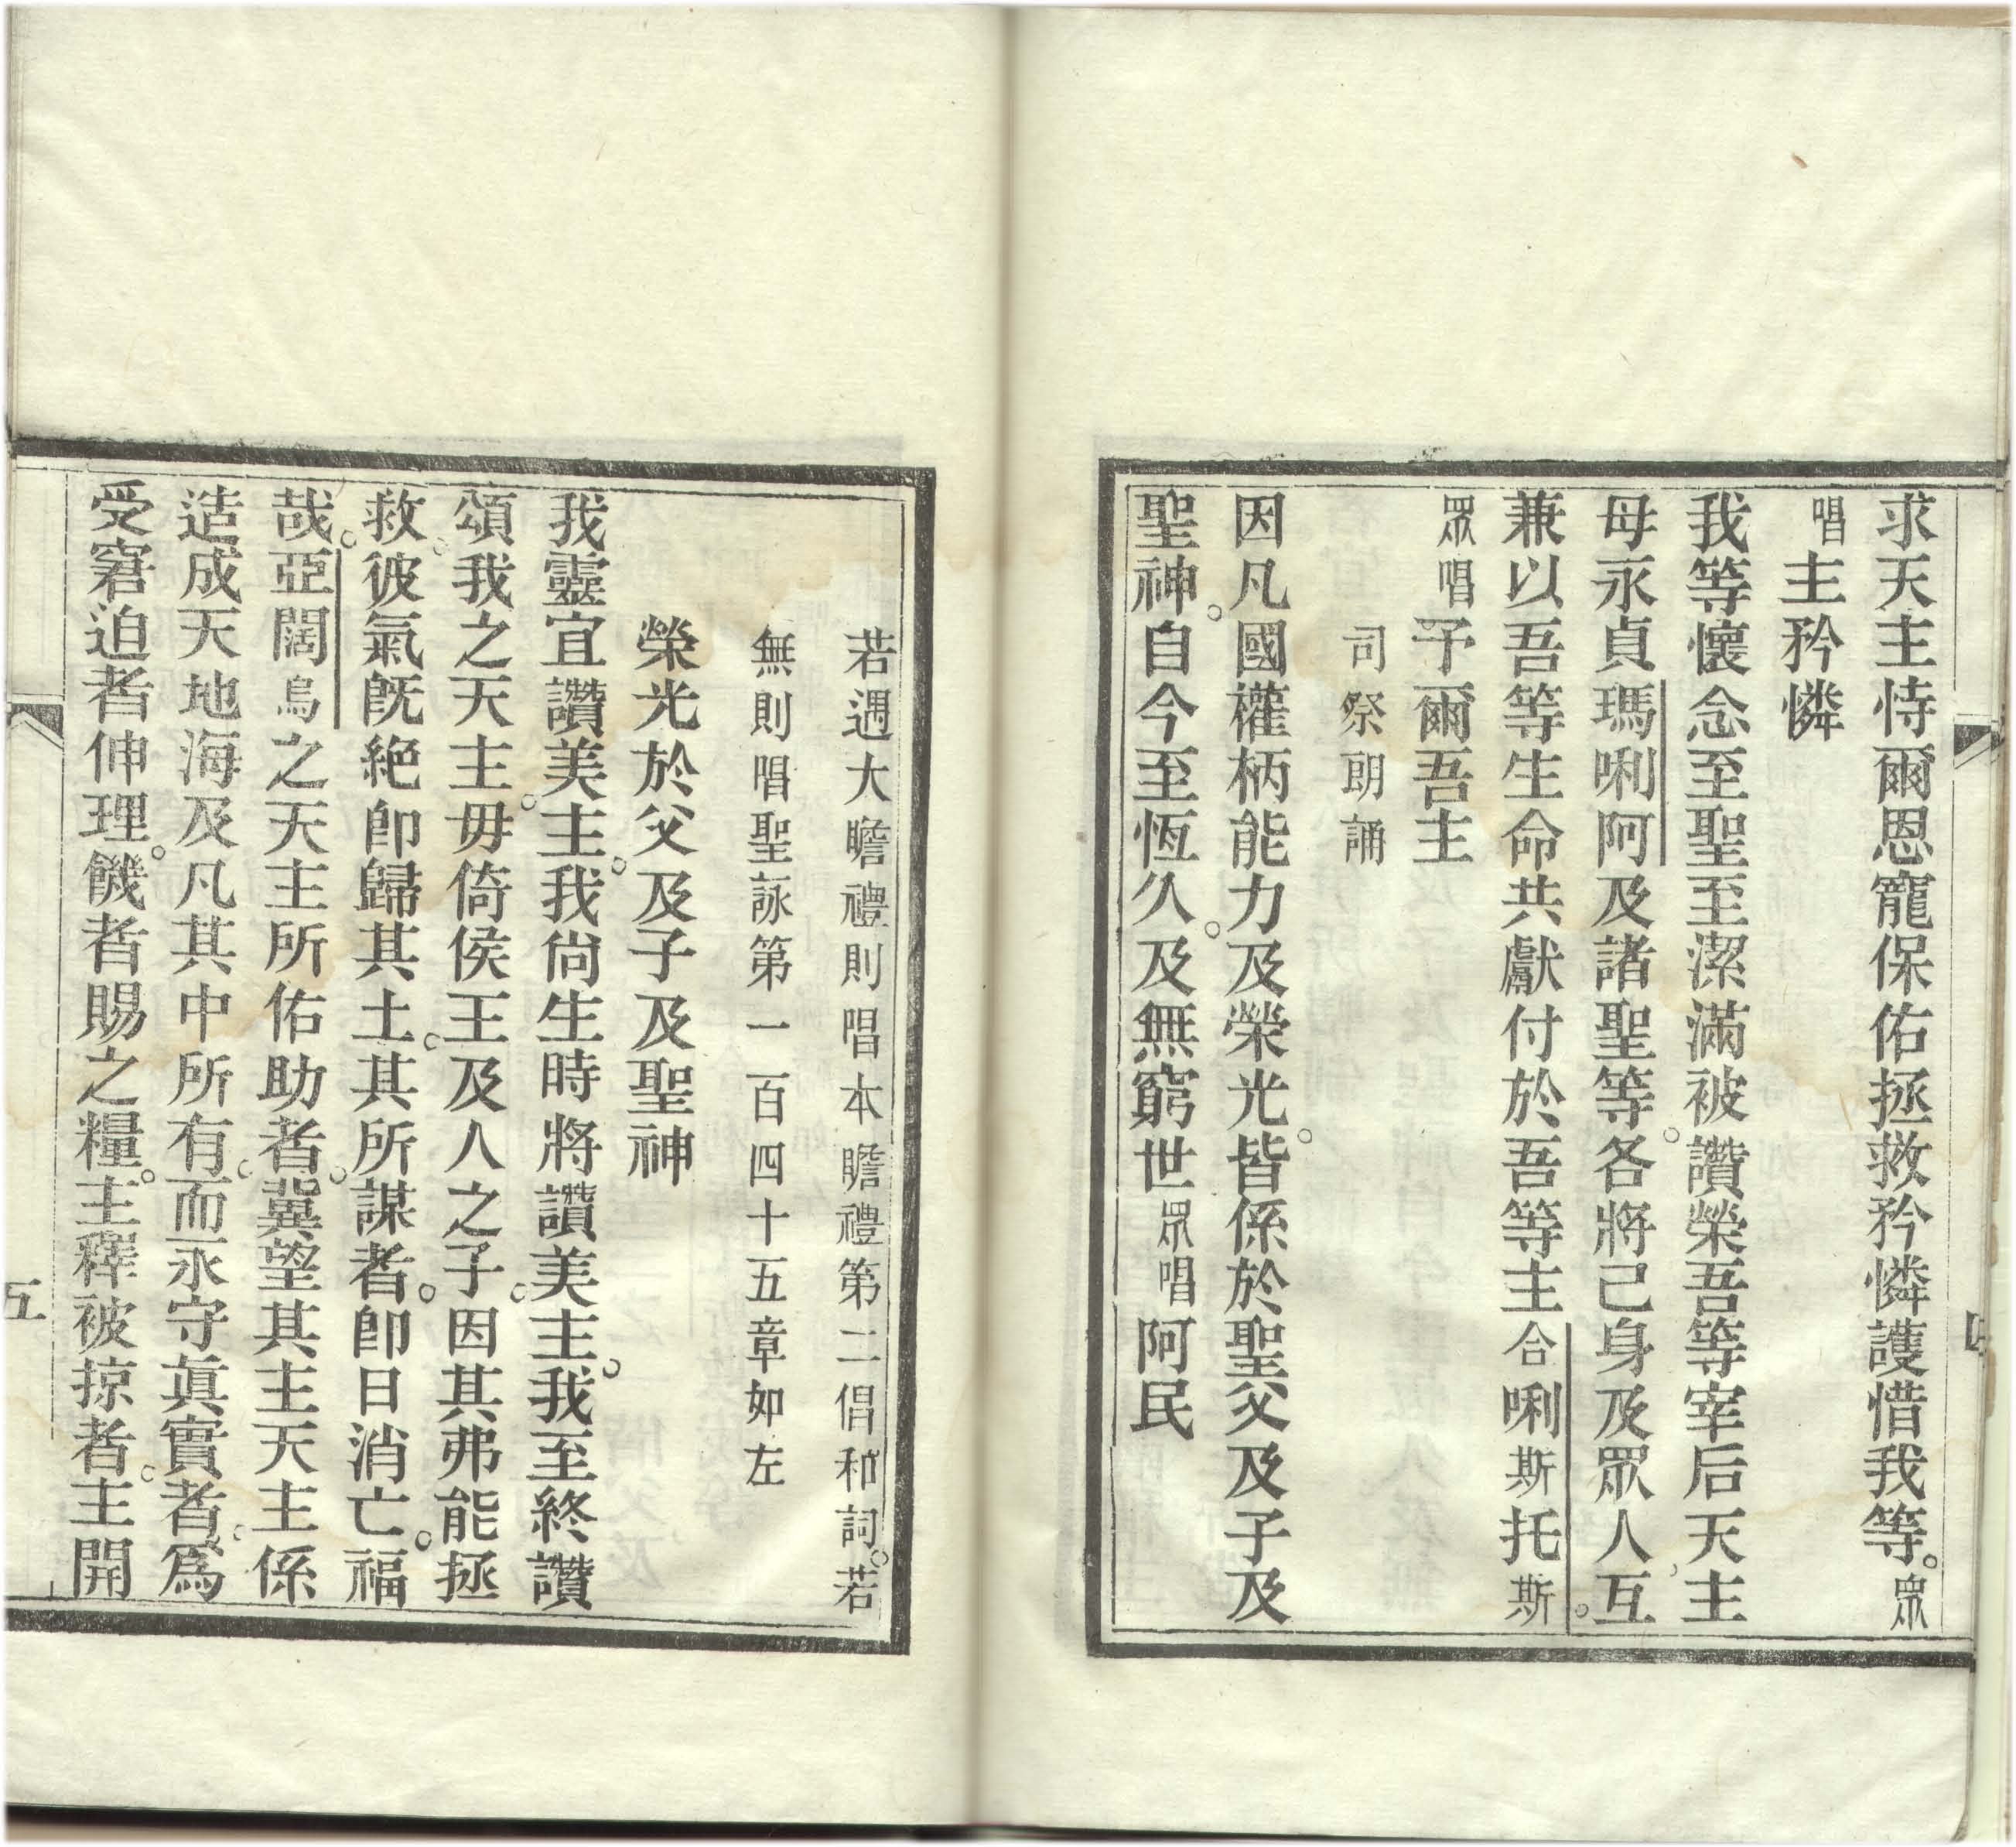 求天主恃爾恩寵保佑拯救矜憐護惜我等。眾
唱主矜憐
我等懷念至聖至潔滿被讚榮吾等宰后天主
母永貞瑪唎阿及諸聖等。各將己身及眾人互
兼以吾等生命共獻付於吾等主合唎斯托斯。
眾唱予爾吾主
司祭朗誦
因凡國權柄能力及榮光。皆係於聖父及子及
聖神。自今至恆久。及無窮世眾唱阿民
若遇大瞻禮則唱本瞻禮第二倡和詞。若
無則唱聖詠第一百四十五章如左
榮光於父及子及聖神
我靈宜讚美主。我尙生時將讚美主。我至終讚
頌我之天主。毋倚侯王及人之子。因其弗能拯
救。彼氣旣絕卽歸其土。其所謀者。卽日消亡。福
哉。亞闊烏之天主所佑助者。冀望其主天主係
造成天地海及凡其中所有。而永守眞實者。爲
受窘迫者伸理。饑者賜之糧。主釋被掠者。主開
五